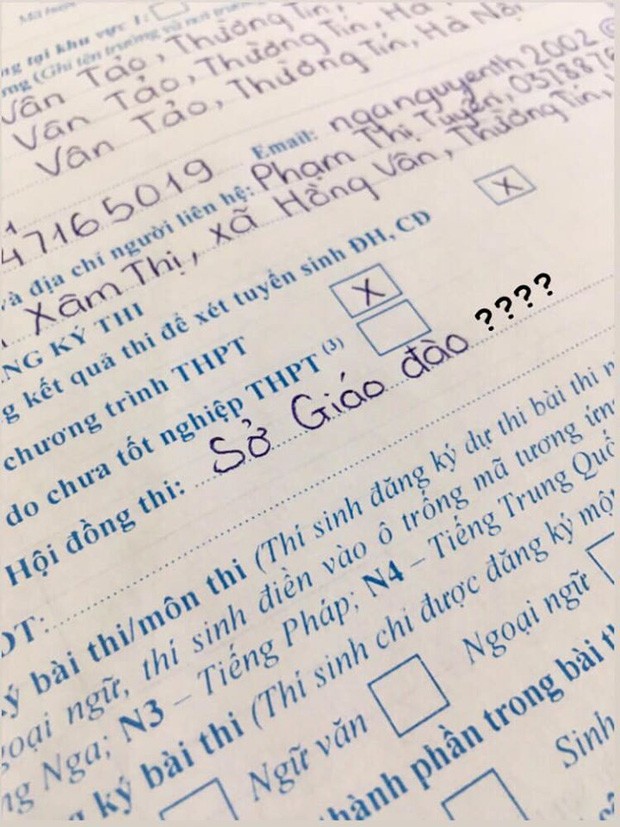 Vân Tảo, Thường Tín,
Vân Tảo, Thường Tín, Hà
Vân Tảo, Thường Tín, Hà Nội
Email: nganguyenth2002@
47165019
và địa chỉ người liên hệ: Phạm Thị Tuyền, 0378876
Xâm Thị, xã Hồng Vân, Thường Tín,
NG KÝ THI
g kết quả thi để xét tuyển sinh ĐH, CĐ X
chương trình THPT X
do chưa tốt nghiệp THPT (3)
Hội đồng thi: Sở Giáo đào ????
DT:
ý bài thi/môn thi (Thí sinh đăng ký dự thi bài thi n
goại ngữ, thí sinh điền vào ô trống mã tương ứn
ng Nga; N3 – Tiếng Pháp; N4 – Tiếng Trung Quố
ký bài thi (Thí sinh chỉ được đăng ký mộ
Ngữ văn Ngoại ngữ
hành phần trong bài t
Sinh